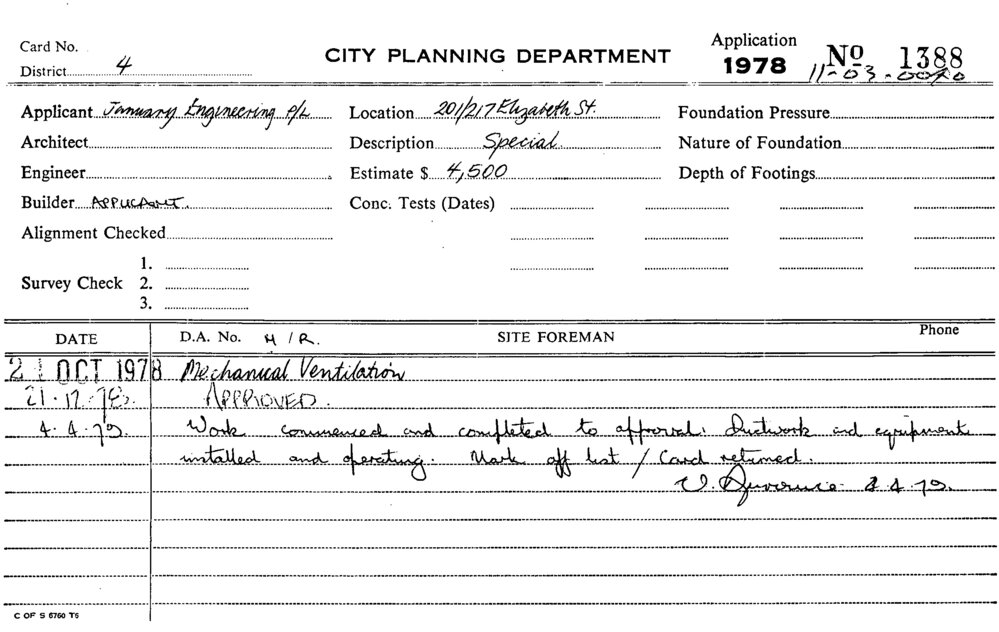 Card No.
District 4
CITY PLANNING DEPARTMENT
Application
1978
No 1388
Applicant January Engineering P/L Location 201/217 Elizabeth St. Foundation Pressure
Architect Description Special Nature of Foundation
Engineer Estimate $ 4,500 Depth of Footings
Builder APPLICANT. Conc. Tests (Dates)
Alignment Checked
Survey Check 1.
2.
3.
DATE D.A. No. M/R. SITE FOREMAN Phone
OCT 1978 Mechanical Ventilation
21.12.78. APPROVED.
4.4.79. Work commenced and completed to approval. Ductwork and equipment
installed and operating. Mark off list / Card returned.
4.4.79.
C OF S 6760 T6